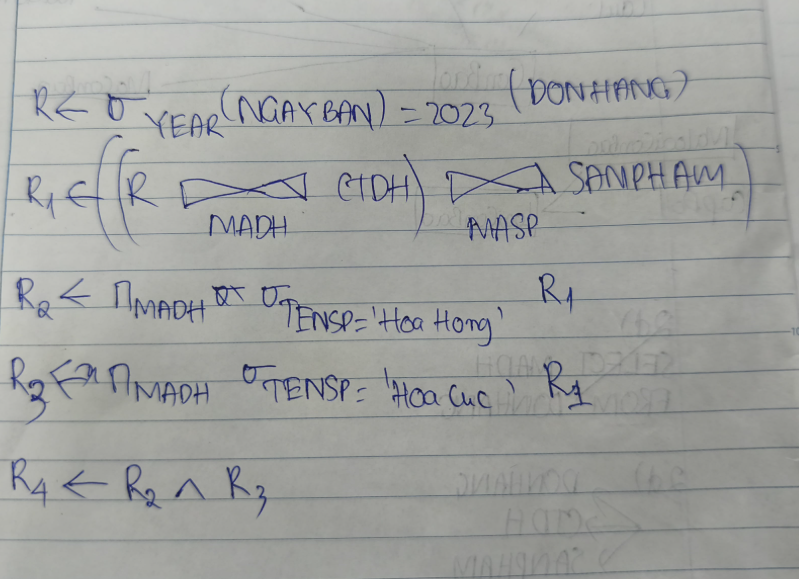 R ← σ YEAR(NGAYBAN) = 2023 (DONHANG)
R1 ← ((R ⋈ MADH CTDH) ⋈ MASP SANPHAM)
R2 ← Π MADH σ TENSP = 'Hoa Hong' R1
R3 ← Π MADH σ TENSP = 'Hoa Cuc' R1
R4 ← R2 ∧ R3